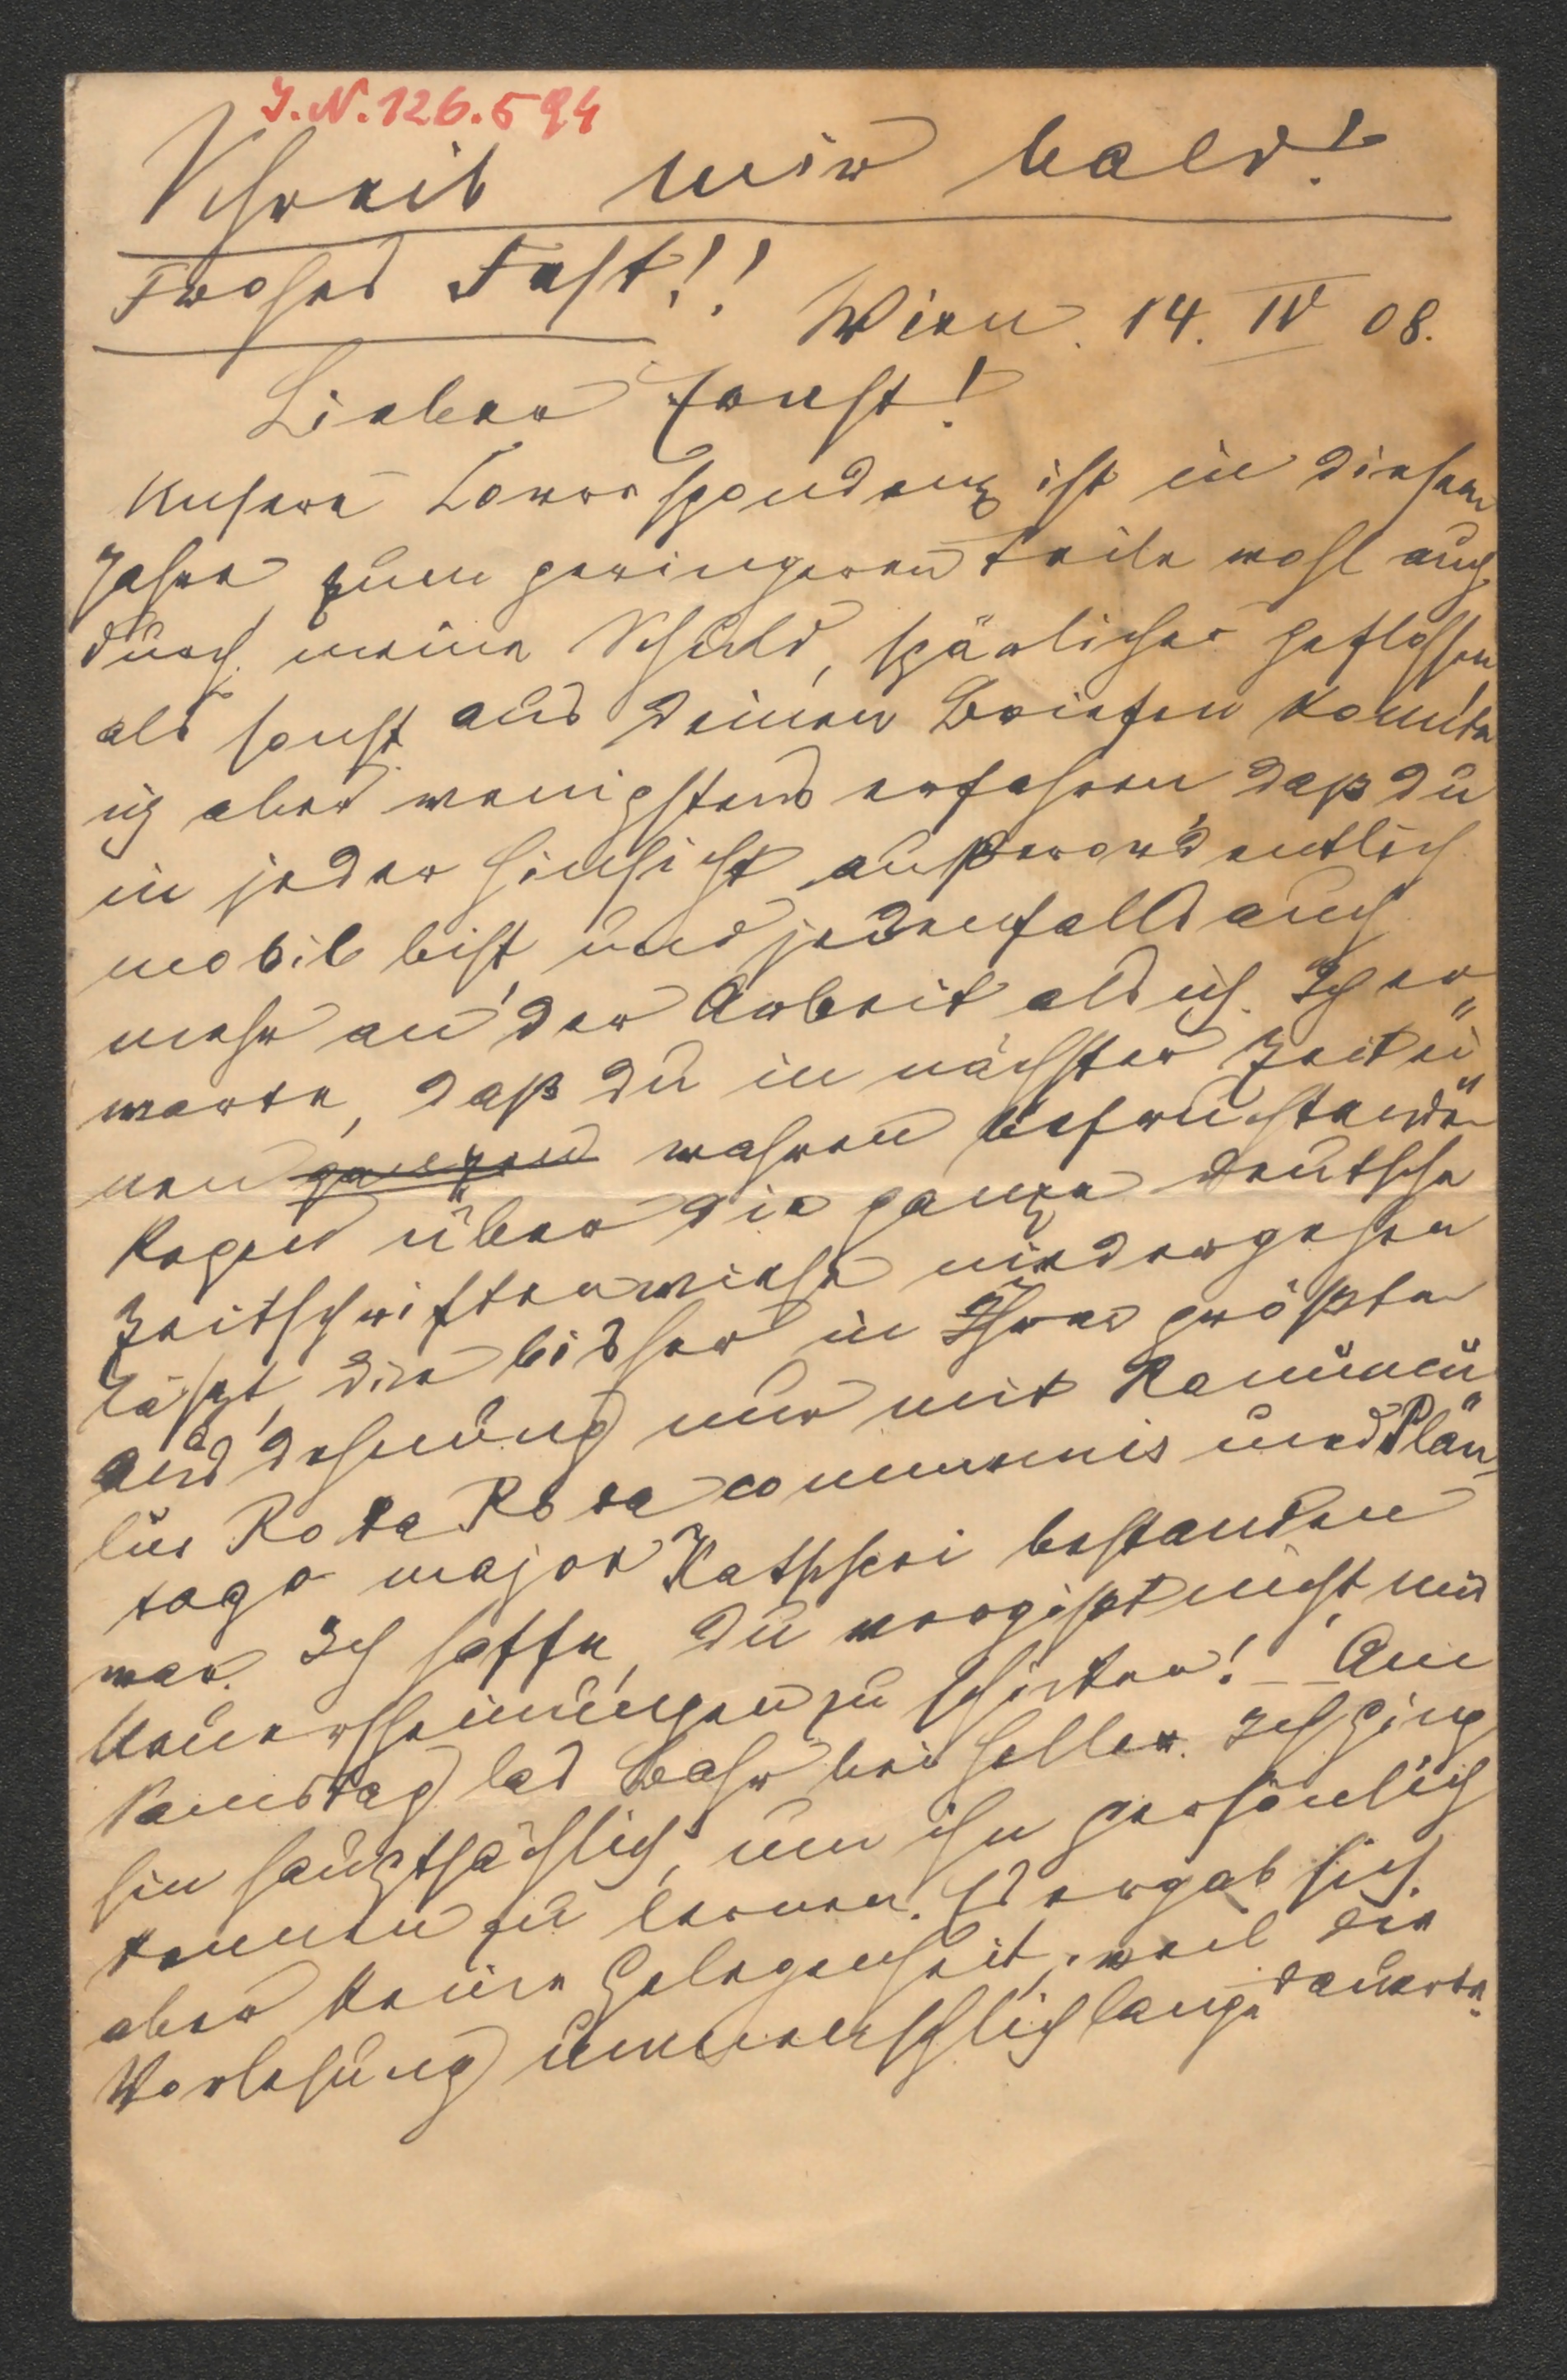 J.N. 126.594
Schreib mir bald!
Frohes Fest!!
Wien. 14. IV 08.
Lieber Ernst!
Unsere Correspondenz ist in diesem
Jahre zum geringeren Teile wohl auch
durch meine Schuld, spärlicher geflossen
als sonst aus deinen Briefen konnte
ich aber wenigstens erfahren, daß du
in jeder Hinsicht außerordentlich
mobil bist, und jedenfalls auch
mehr an der Arbeit als ich. Ich er
warte, daß du in nächster Zeit ei"
nen ganzen wahren befruchtenden
Regen über die ganze deutsche
Zeitschriftenwiese niedergehen
läßt, die bisher in Ihrer größten
Ausdehnung nur mit Ranuncu"
lus Roda Roda communis und Plan"
tago major Katscheri bestanden
war. Ich hoffe, du vergißt nicht, mir
Neuerscheinungen zu schicken! – Am
Samstag las Bahr bei Heller. Ich ging
hin hauptsächlich, um ihn persönlich
kennen zu lernen. Es ergab sich
aber keine Gelegenheit, weil die
Vorlesung unmenschlich lange dauerte.